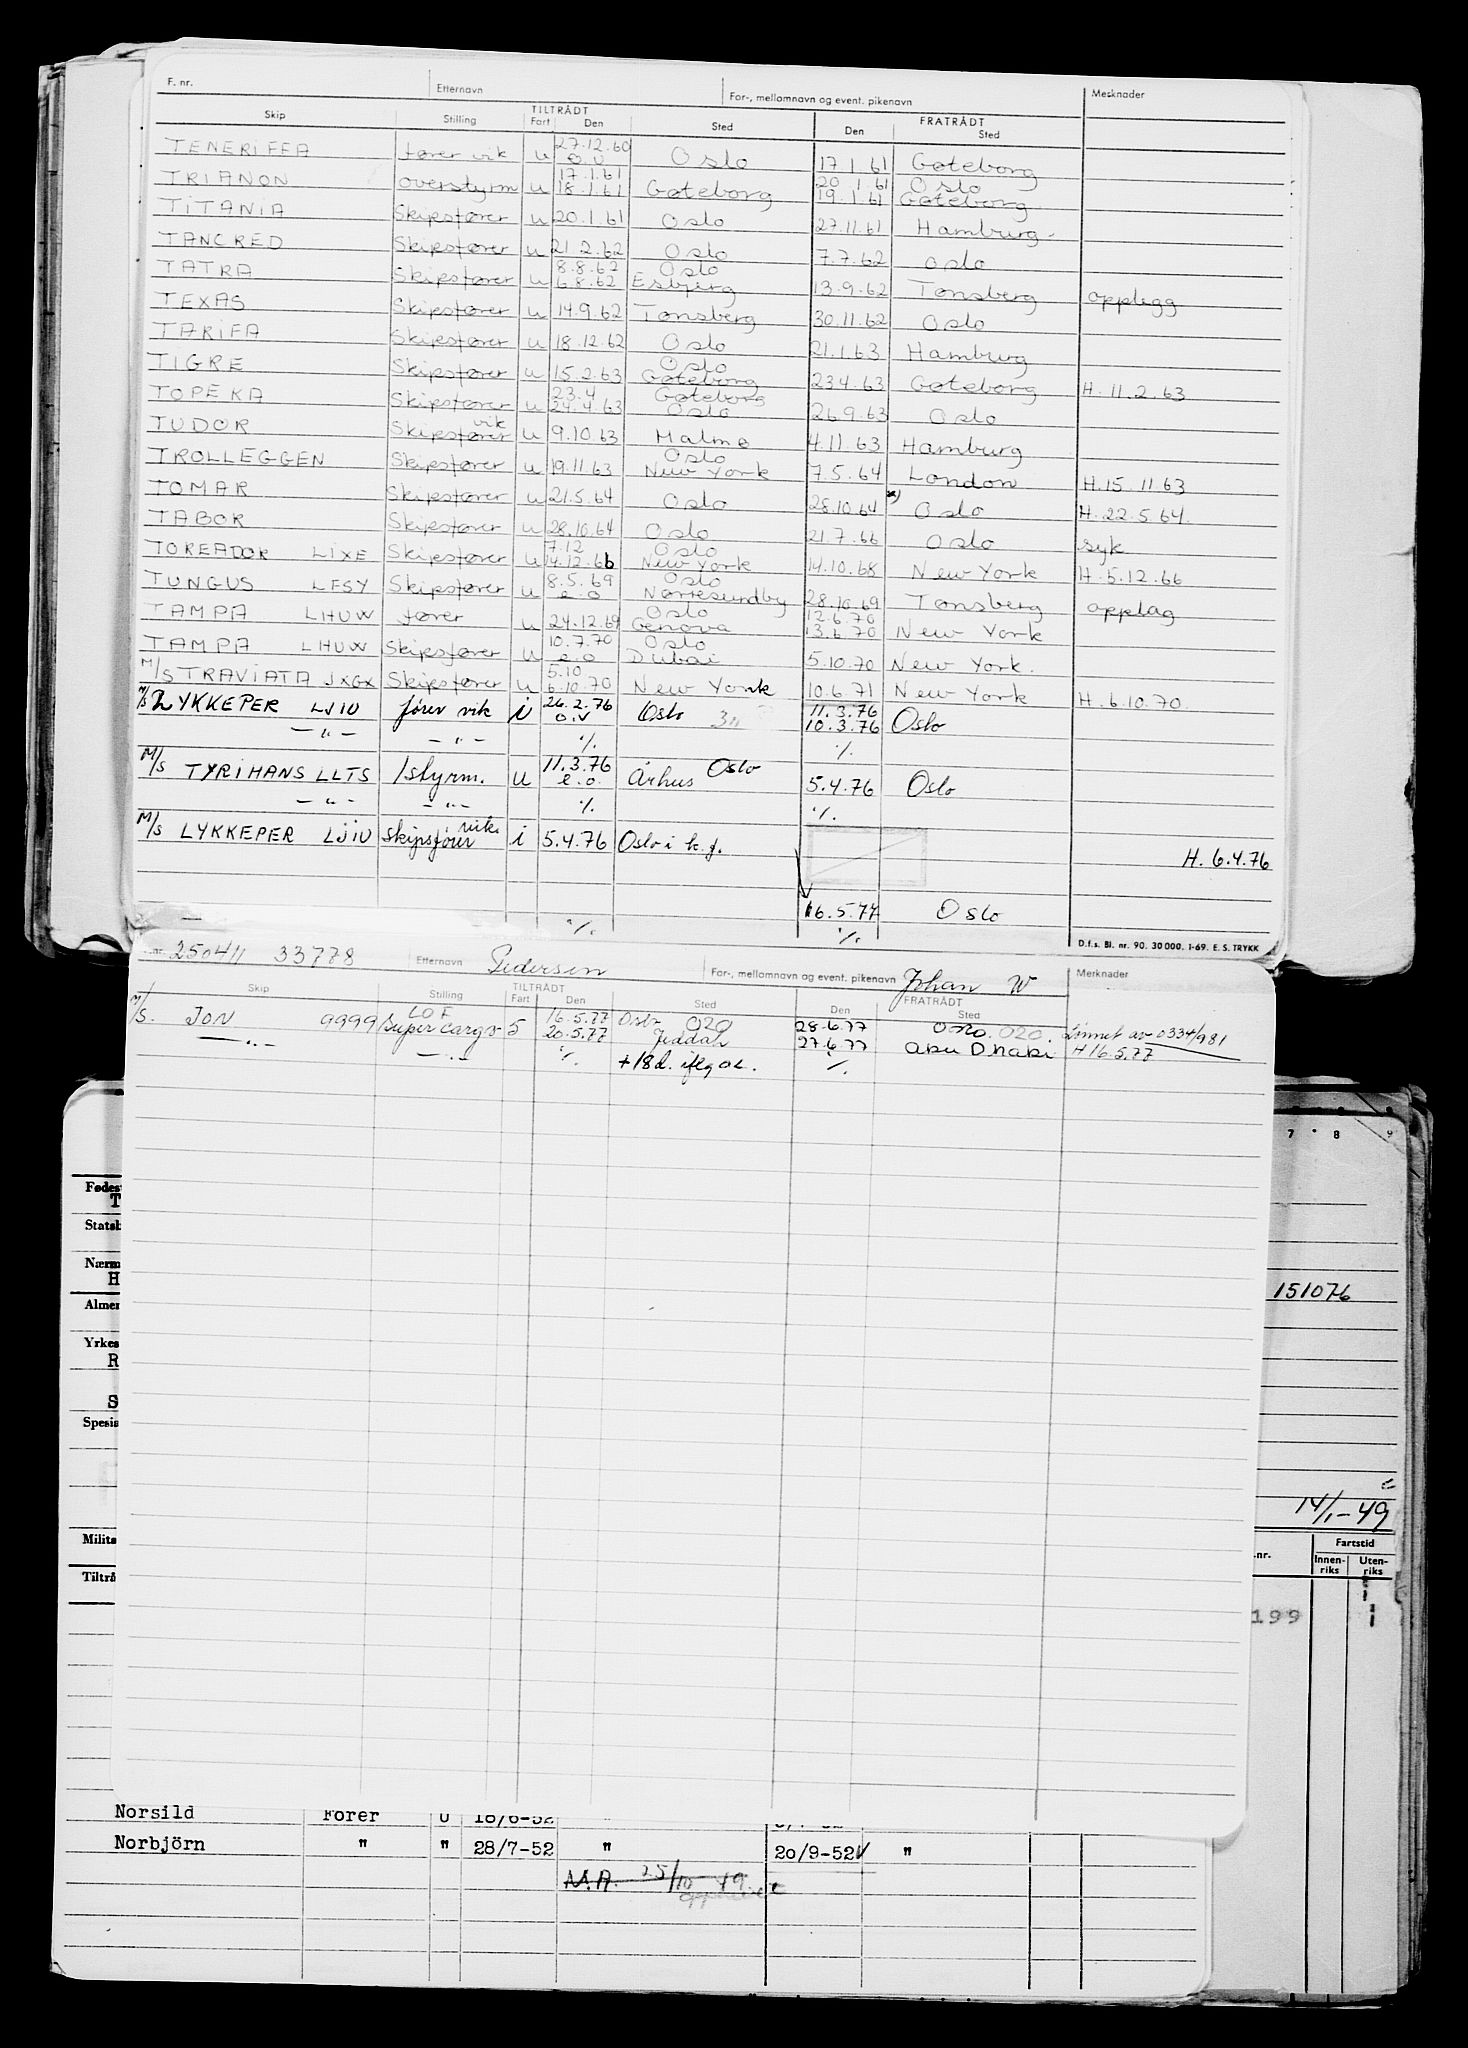 F. nr. Etternavn For-, mellomnavn og event. pikenavn Mesknader
Skip Stilling TILTRÅDT Fart Den Sted FRATRÅDT Den Sted
TENERIFFA fører vik u 27.12.60 o.v Oslo 17.1.61 Gøteborg
TRIANON overstyrm u 17.1.61 18.1.61 Gøteborg 20.1.61 19.1.61 Oslo Gøteborg
TITANIA Skipsfører u 20.1.61 Oslo 27.11.61 Hamburg
TANCRED Skipsfører u 21.2.62 Oslo 7.7.62 Oslo
TATRA Skipsfører u 8.8.62 6.8.62 Oslo Esbjerg 13.9.62 Tønsberg opplegg
TEXAS Skipsfører u 14.9.62 Tønsberg 30.11.62 Oslo
TARIFA Skipsfører u 18.12.62 Oslo 21.1.63 Hamburg
TIGRE Skipsfører u 15.2.63 Oslo Gøteborg 23.4.63 Gøteborg H. 11.2.63
TOPEKA Skipsfører u 23.4 24.4.63 Gøteborg Oslo 26.9.63 Oslo
TUDOR Skipsfører vik u 9.10.63 Malmø 4.11.63 Hamburg
TROLLEGGEN Skipsfører u 19.11.63 Oslo New York 7.5.64 London H.15.11.63
TOMAR Skipsfører u 21.5.64 Oslo 28.10.64 x) Oslo H. 22.5.64
TABOR Skipsfører u 28.10.64 Oslo 21.7.66 Oslo syk
TOREADOR LIXE Skipsfører u 7.12 14.12.66 Oslo New York 14.10.68 New York H.5.12.66
TUNGUS LFSY Skipsfører u 8.5.69 e.o Oslo Nørresundby 28.10.69 Tønsberg opplag
TAMPA LHUW fører u 24.12.69 Oslo Genova 12.6.70 13.6.70 New York
TAMPA LHUW Skipsfører u 10.7.70 e.o Oslo Dubai 5.10.70 New York.
M/S TRAVIATA JXGX Skipsfører u 5.10 6.10.70 New York 10.6.71 New York H.6.10.70.
M/S LYKKEPER LJIU fører vik i 26.2.76 o.v Oslo 11.3.76 10.3.76 Oslo
— " — — " — ·/. ·/.
M/S TYRIHANS LLTS 1styrm. u 11.3.76 e.o. Århus Oslo 5.4.76 Oslo
— " — — " — ·/. ·/.
M/S LYKKEPER LJIU skipsfører vik. i 5.4.76 Oslo i k.f. H. 6.4.76
16.5.77 Oslo
·/. ·/. D.f.s. Bl. nr. 90. 30 000. 1-69. E. S. TRYKK
250411 33778 Etternavn Pedersen For-, mellomnavn og event. pikenavn Johan W Merknader
Skip Stilling TILTRÅDT Fart Den Sted Den FRATRÅDT Sted
M/S. JON 9999 LOF supercargo 5 16.5.77 20.5.77 Oslo 020 Jeddah 28.6.77 27.6.77 Oslo. 020. Abu Dhabi Lønnet av 0334/981 H 16.5.77
— " — — " — ·/. +18d. iflg ·/.
7 8 9
Fødes
T
Statsb
Nærm
H
151076
Almen
Yrkes
R
S
Spesia
14/1-49
Milita
Fartstid
Tiltrå .nr. Innen-riks Uten-riks
199
Norsild Fører U 18/6-52 "
Norbjörn " " 28/7-52 " 20/9-52 "
M.A. 25/10 49